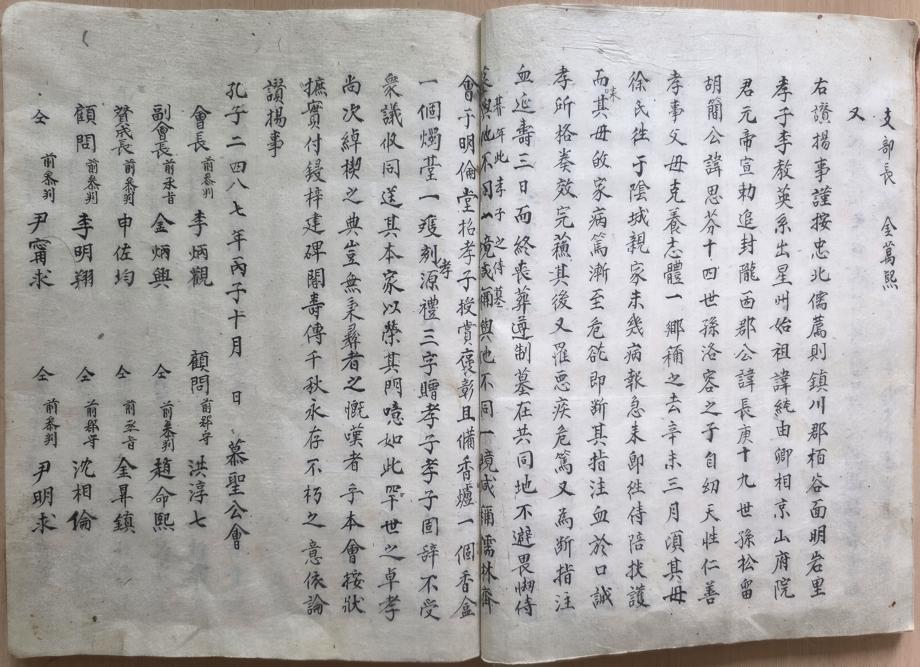 支部長 金萬熙
又
右讃揚事謹按忠北儒薦則鎮川郡栢谷面明岩里
孝子李敎英系出星州始祖諱純由卿相京山府院
君元帝宣勅追封隴西郡公諱長庚十九世孫松留
胡簡公諱思芬十四世孫洛容之子自幼天性仁善
孝事父母克養志體一鄕稱之去辛未三月湏其母
徐氏徃于陰城親家未幾病報急来卽徃侍陪扶護
味
而其母敀家病篤漸至危砣卽断其指注血於口誠
孝所格奏效完穌其後又罹悪疾危篤又爲断指注
血延壽三日而終喪葬遵制墓在共同地不避畏懶侍
朞年此孝子之侍墓
墓與他不同一境咸稱與他不同一境咸稱儒林齊
會于明倫堂招孝子授賞褒彰且備香爐一個香盒
孝
一個燭䑓一䨥刻源禮三字贈孝子孝子固辞不受
衆議收同送其本家以榮其門噫如此罕世之卓孝
尚次綽楔之典豈無秉彛者之慨嘆者乎本會按狀
摭實付鋟梓建碑閣壽傳千秋永存不朽之意依論
讃揚事
孔子二四八七年丙子十月 日 慕聖公會
會長 前叅判 李炳觀 顧問 前郡守 洪淳七
副會長 前承旨 金炳興 仝 前叅判 趙命熙
賛成長 前叅判 申佐均 仝 前丞旨 金昇鎮
顧問 前叅判 李明翔 仝 前郡守 沈相倫
仝 前叅判 尹甯求 仝 前叅判 尹明求